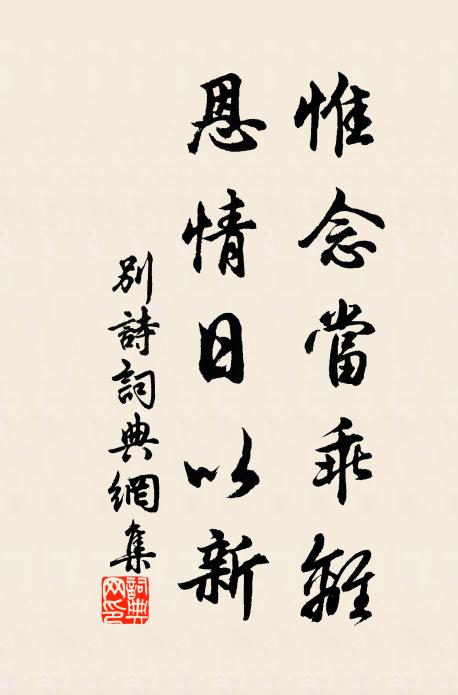 惟念當乖離
恩情日以新
別詩詞典網集
詞典网印